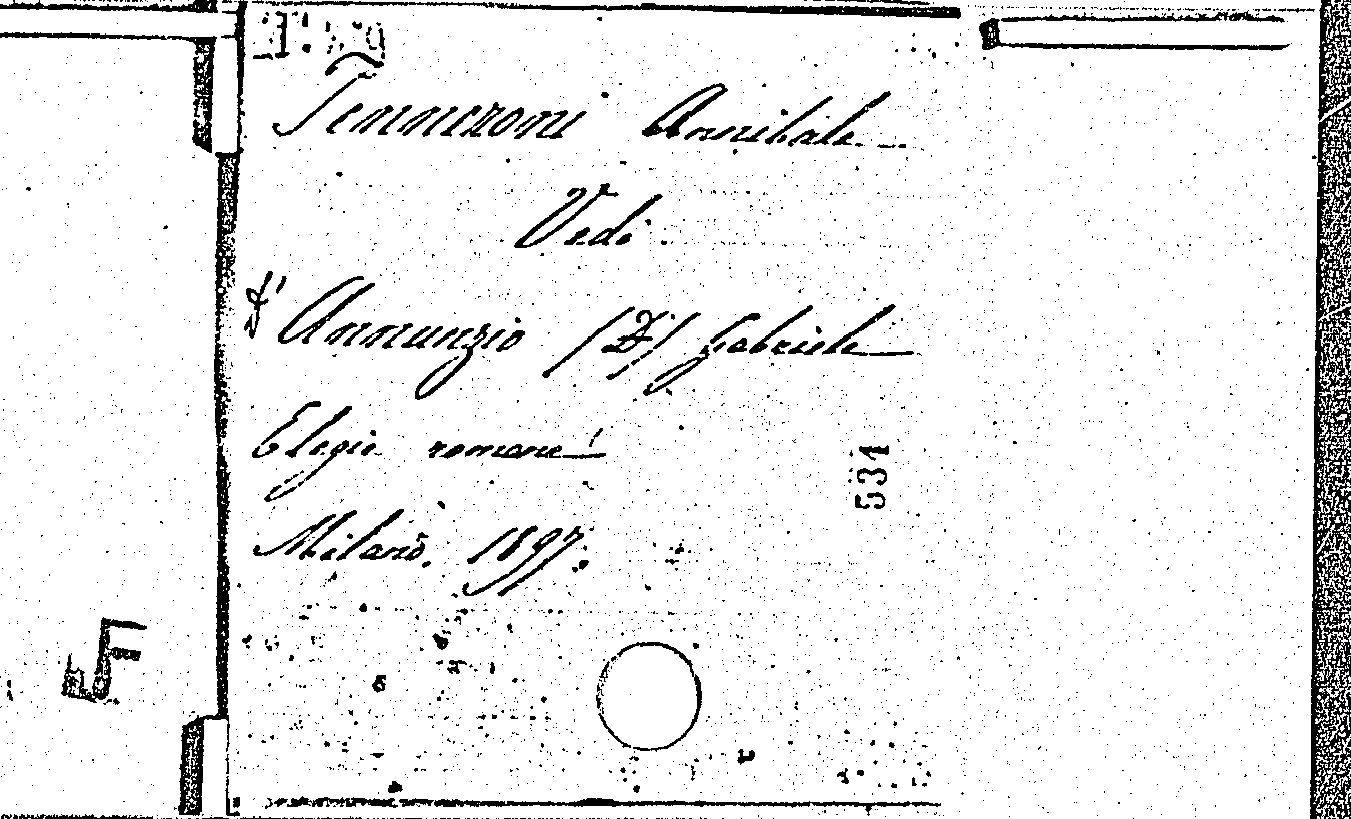 Tenneroni Annibale
Vedi
d'Annunzio /D'/ Gabriele
Elegie romane
Milano, 1897.
531